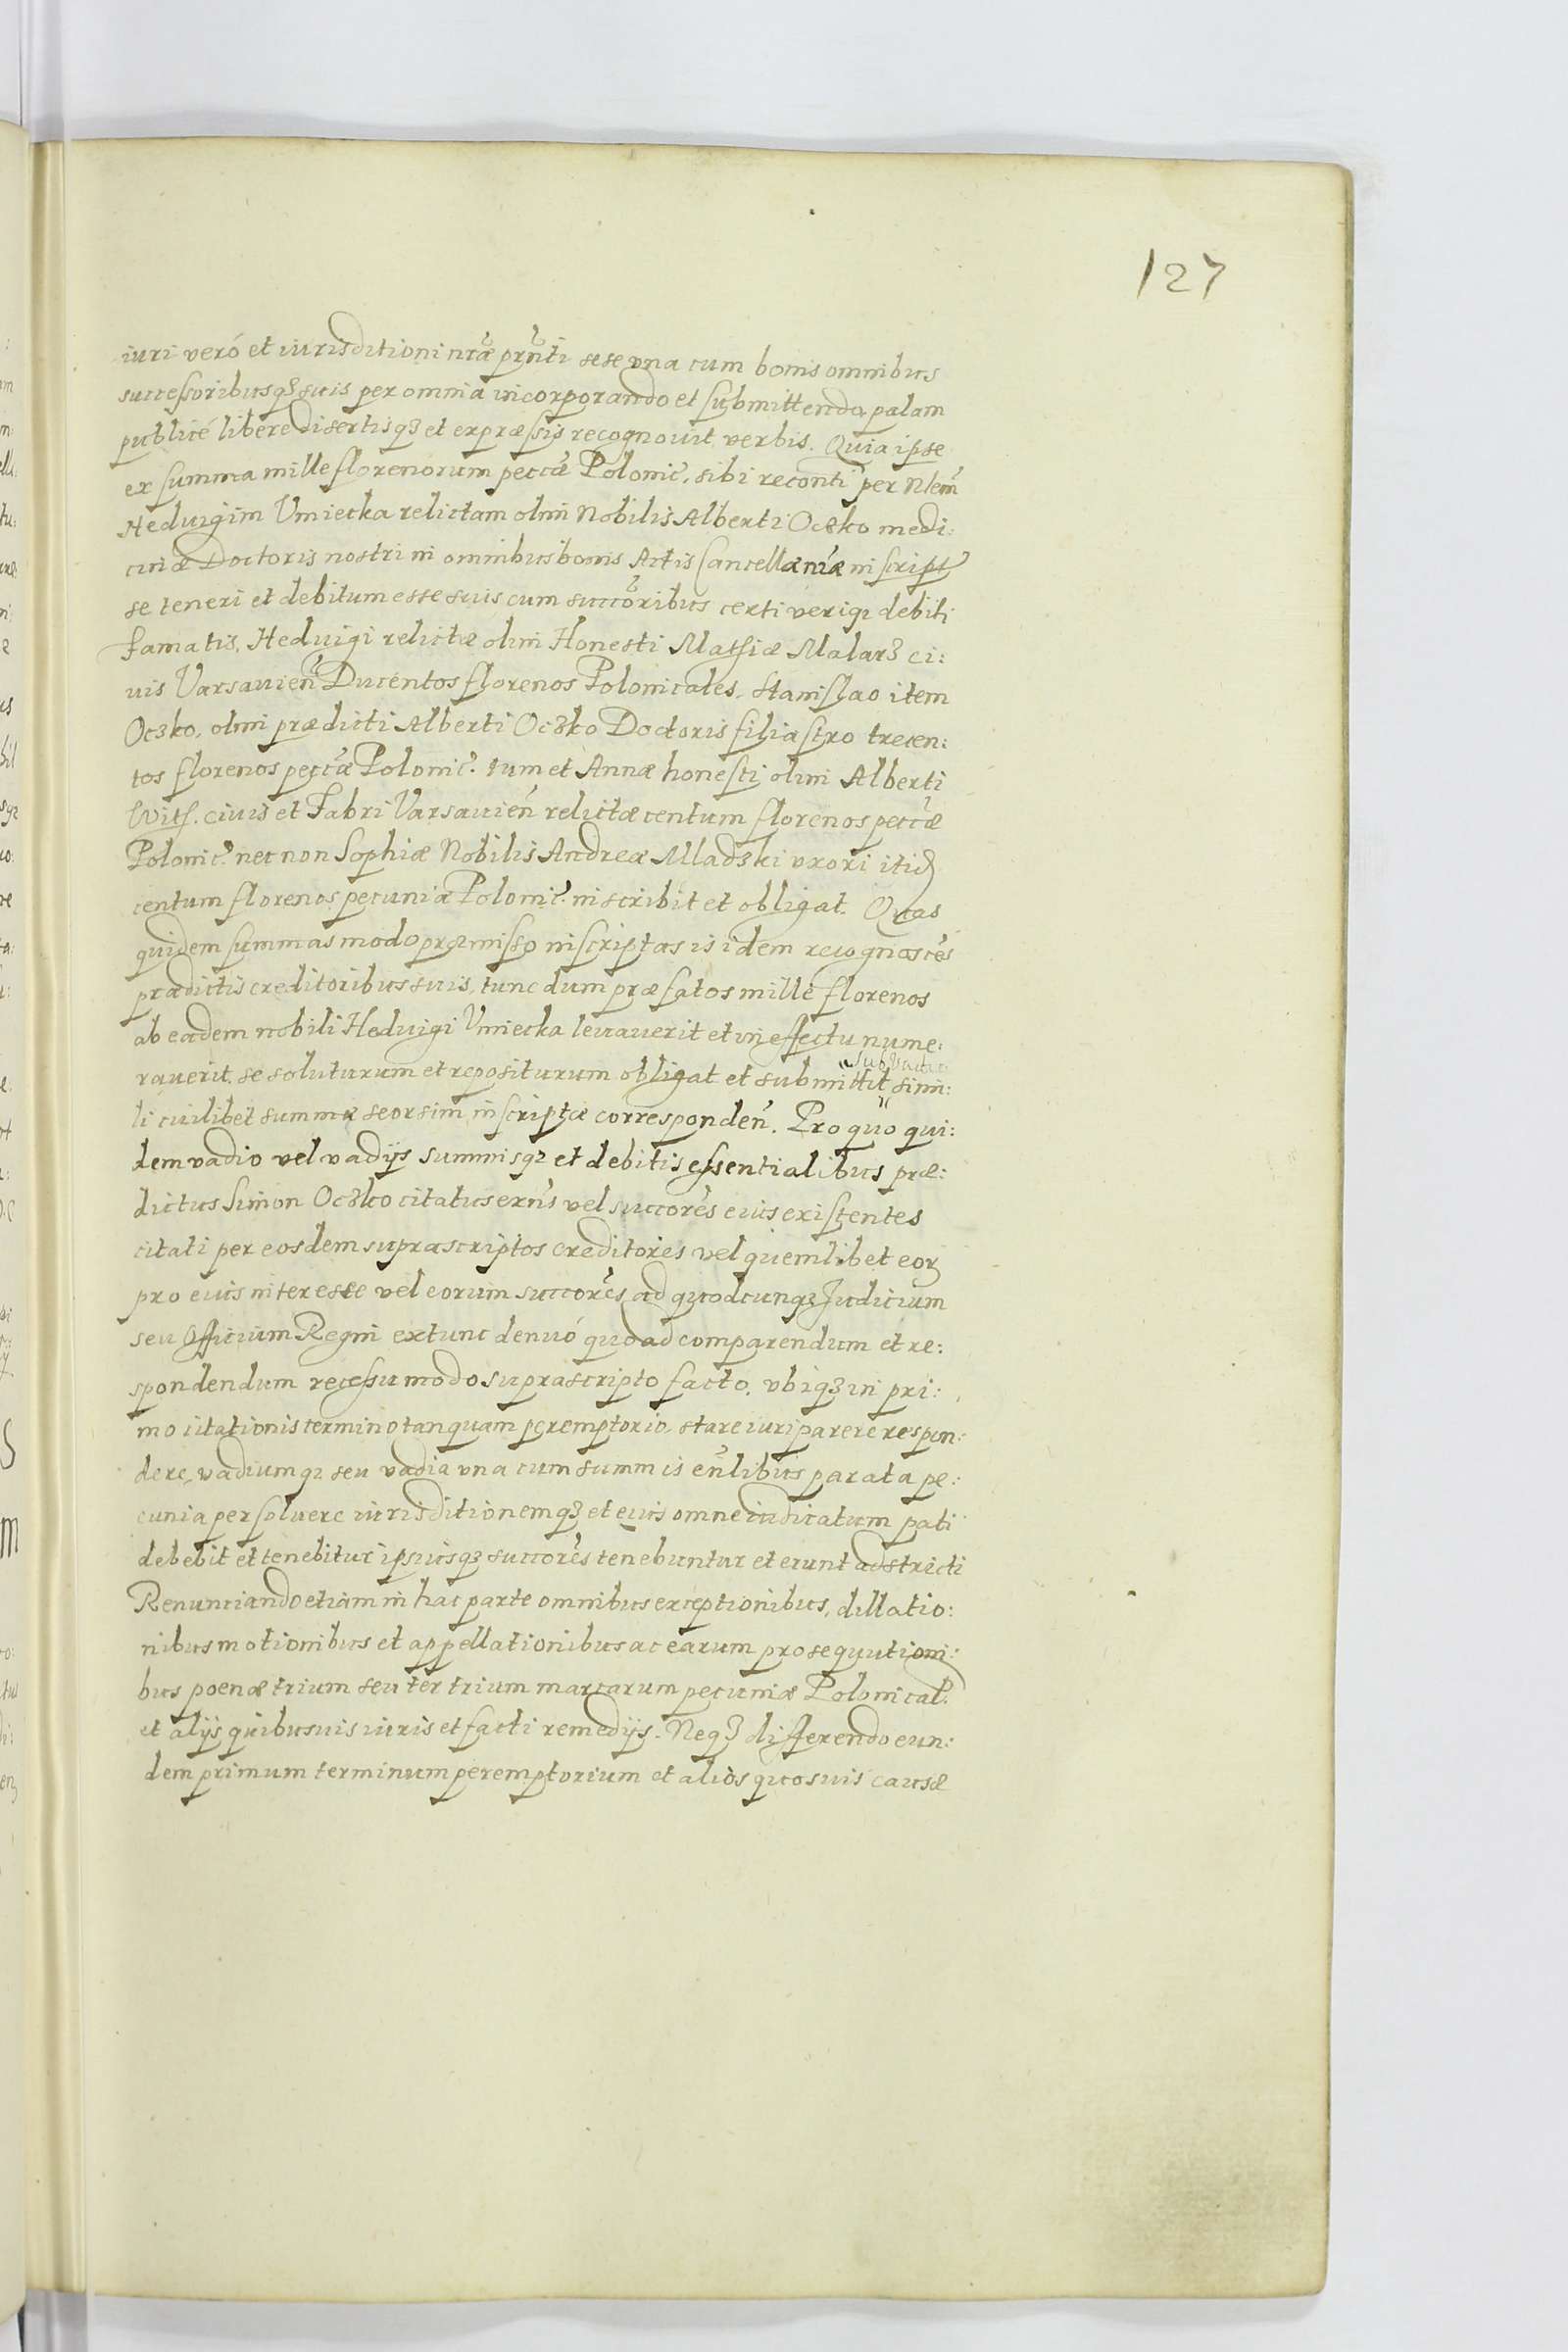 127
iuri veró et iurisditioni nr̃æ pr̃nti sese vna cum bonis omnibus
successoribusq3 suis per omnia incorporando et submittendo, palam
publicé libere disertisq3 et expræssis recognouit verbis. Quia ipse
ex summa mille florenorum peccæ̃ Polonic̃. sibi reconti per Nlem̃
Heduigim Vmiecka relictam olim Nobilis Alberti Oczko medi:
cinæ Doctoris nostri in omnibus bonis Actis Cancellariæ inscript
se teneri et debitum esse suis cum succor̃ibus certi veriq3 debiti
famatis, Heduigi relictæ olim Honesti Mathiæ Malarz ci:
uis Varsauien̄ Ducentos florenos Polonicales. Stanislao item
Oczko, olim prædicti Alberti Oczko Doctoris filiastro trecen:
tos florenos peccæ̃ Polonic̃. tum et Annæ honesti olim Alberti
Wits. ciuis et Fabri Varsauien̄ relictæ centum florenos peccæ̃
Polonic̃ nec non Sophiæ Nobilis Andreæ Mladzki vxori itid
centum florenos pecuniæ Polonic̃. inscribit et obligat. Quas
quidem summas modo præmisso inscriptas is idem recognoscẽs
prædictis creditoribus suis, tunc dum præfatos mille florenos
ab eadem nobili Heduigi Vmiecka leuauerit et in effectu nume:
rauerit, se soluturum et repositurum obligat et submittit simi:
li cuilibet summæ seorsim inscriptæ corresponden̄. Pro quo qui:
dem vadio vel vadijs summisq3 et debitis essentialibus præ:
dictus Simon Oczko citatus exñs vel succorẽs eius existentes
citati per eosdem suprascriptos creditores vel quemlibet eor
pro eius interesse vel eorum succorẽs ad quodcunq3 Judicium
seu Officium Regni extunc denuó quoad comparendum et re:
spondendum recessu modo suprascripto facto. vbiq3 in pri:
mo citationis termino tanquam peremptorio. stare iuri parere respon:
dere, vadiumq3 seu vadia vna cum summis en̄libus parata pe:
cunia persoluere iurisditionemq3 et eius omne iudicatum pati
debebit et tenebitur ipsiusq3 succorẽs tenebuntur et erunt adstricti
Renunciando etiam in hac parte omnibus exceptionibus, dillatio:
nibus motionibus et appellationibus ac earum prosequutioni:
bus poenæ trium seu ter trium marcarum pecuniæ Polonical.
et alijs quibusuis iuris et facti remedijs. Neq3 differendo eun:
dem primum terminum peremptorium et alios quosuis causæ